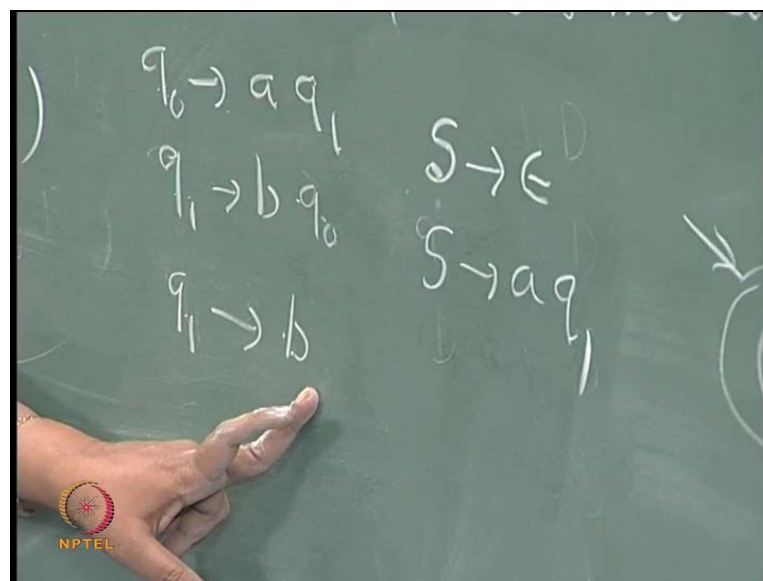 q₀ → a q₁
q₁ → b q₀
q₁ → b
S → ϵ
S → a q₁
NPTEL